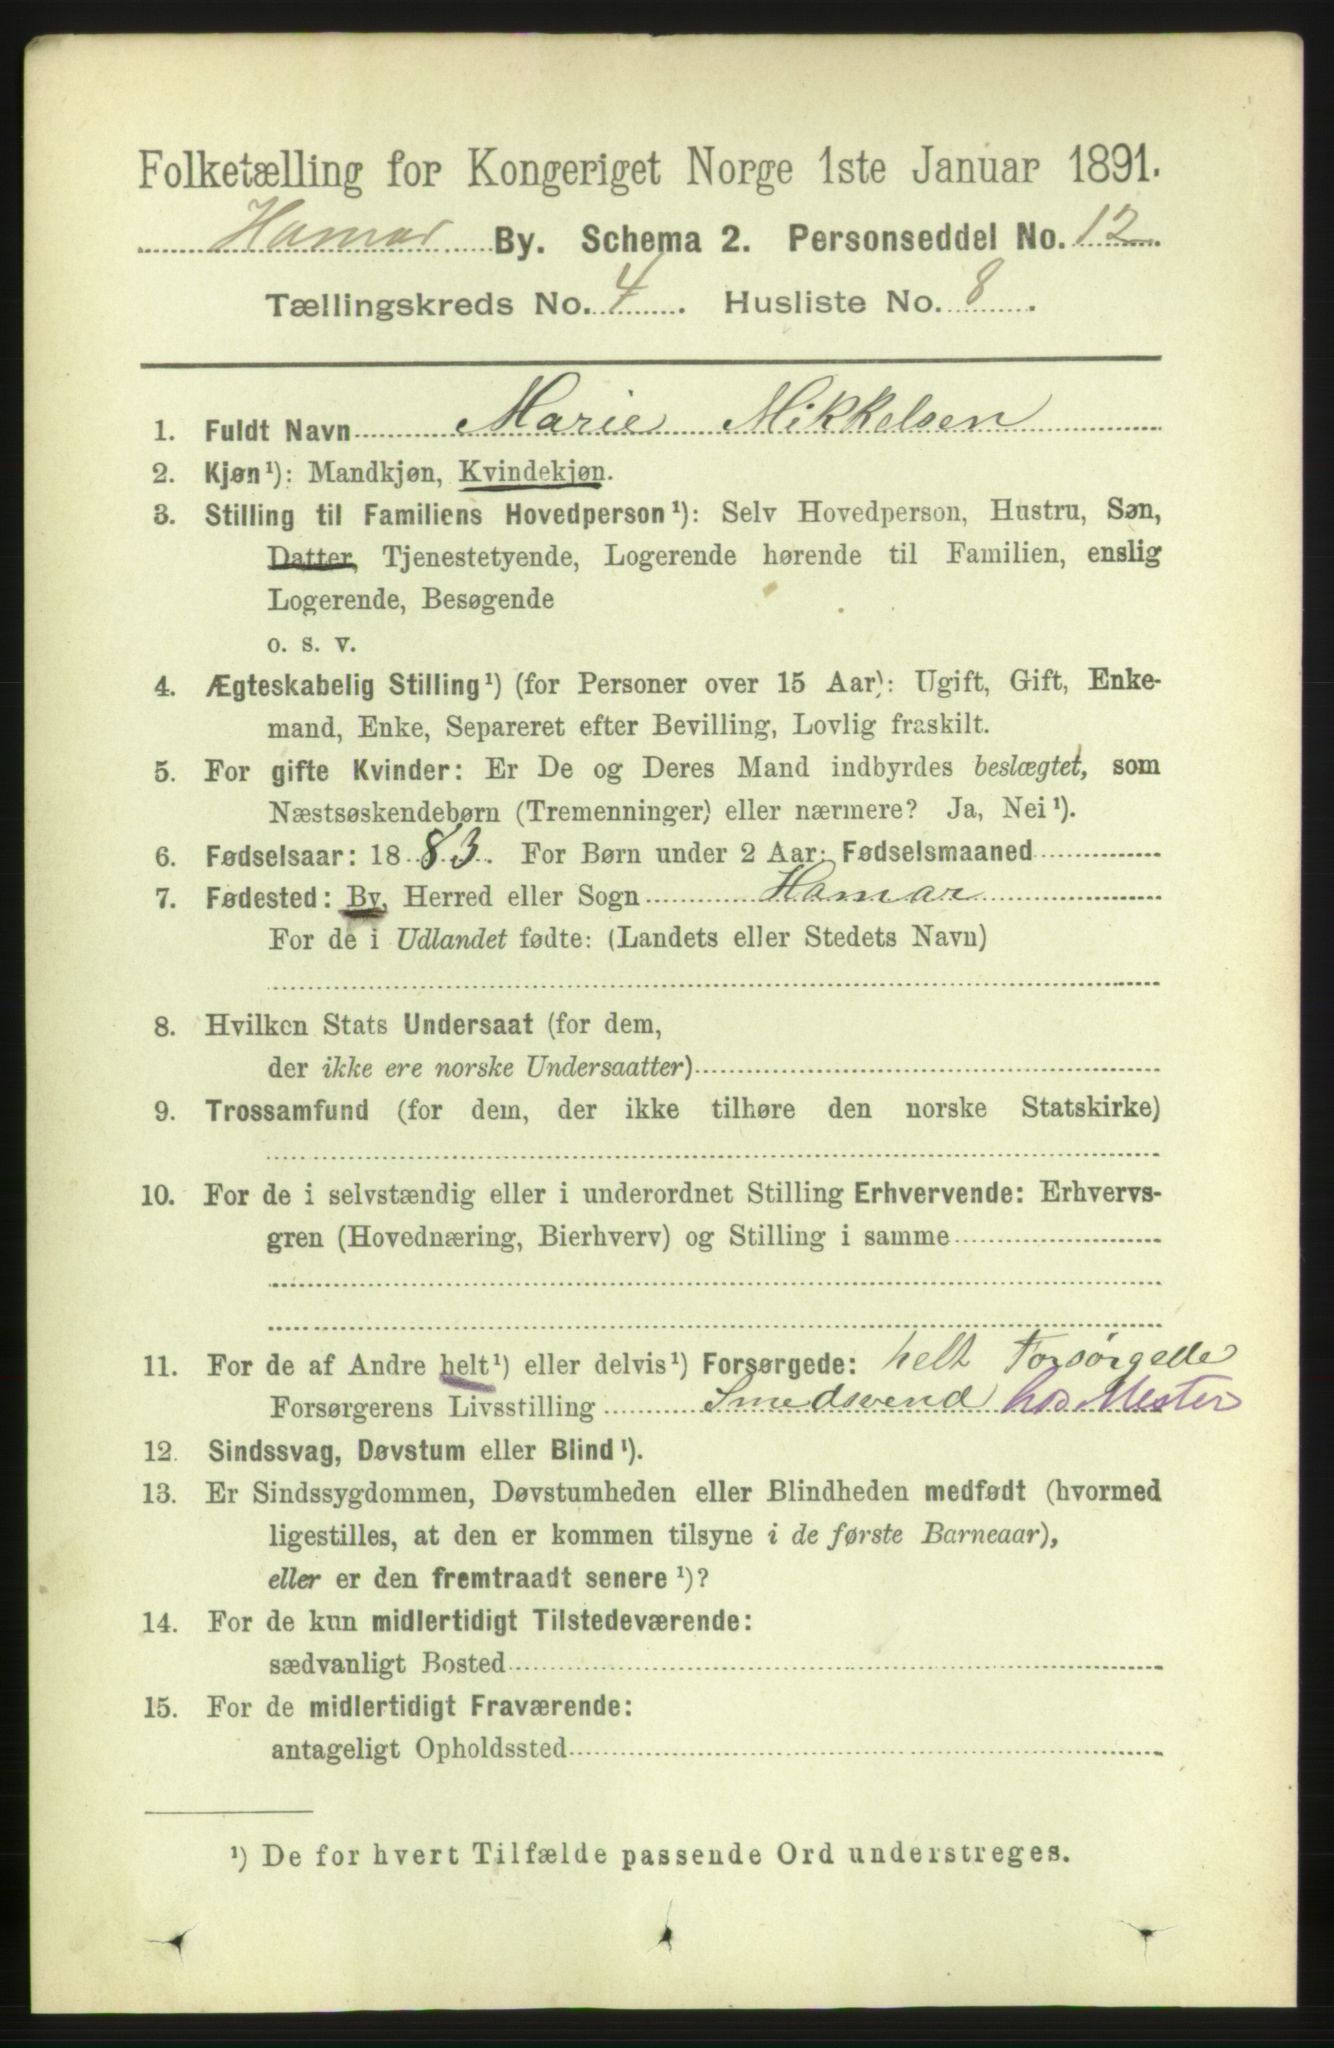 Folketælling for Kongeriget Norge 1ste Januar 1891.
Hamar By. Schema 2. Personseddel No. 12.
Tællingskreds No. 4. Husliste No. 8.
1. Fuldt Navn Marie Mikkelsen
2. Kjøn¹): Mandkjøn, Kvindekjøn.
3. Stilling til Familiens Hovedperson¹): Selv Hovedperson, Hustru, Søn,
Datter, Tjenestetyende, Logerende hørende til Familien, enslig
Logerende, Besøgende
o. s. v.
4. Ægteskabelig Stilling¹) (for Personer over 15 Aar): Ugift, Gift, Enke-
mand, Enke, Separeret efter Bevilling, Lovlig fraskilt.
5. For gifte Kvinder: Er De og Deres Mand indbyrdes beslægtet, som
Næstsøskendebørn (Tremenninger) eller nærmere? Ja, Nei¹).
6. Fødselsaar: 1883. For Børn under 2 Aar: Fødselsmaaned
7. Fødested: By, Herred eller Sogn Hamar
For de i Udlandet fødte: (Landets eller Stedets Navn)
8. Hvilken Stats Undersaat (for dem,
der ikke ere norske Undersaatter)
9. Trossamfund (for dem, der ikke tilhøre den norske Statskirke)
10. For de i selvstændig eller i underordnet Stilling Erhvervende: Erhvervs-
gren (Hovednæring, Bierhverv) og Stilling i samme
11. For de af Andre helt¹) eller delvis¹) Forsørgede: helt Forsørgede
Forsørgerens Livsstilling Smedsvend hos Mester
12. Sindssvag, Døvstum eller Blind¹).
13. Er Sindssygdommen, Døvstumheden eller Blindheden medfødt (hvormed
ligestilles, at den er kommen tilsyne i de første Barneaar),
eller er den fremtraadt senere¹)?
14. For de kun midlertidigt Tilstedeværende:
sædvanligt Bosted
15. For de midlertidigt Fraværende:
antageligt Opholdssted
¹) De for hvert Tilfælde passende Ord understreges.